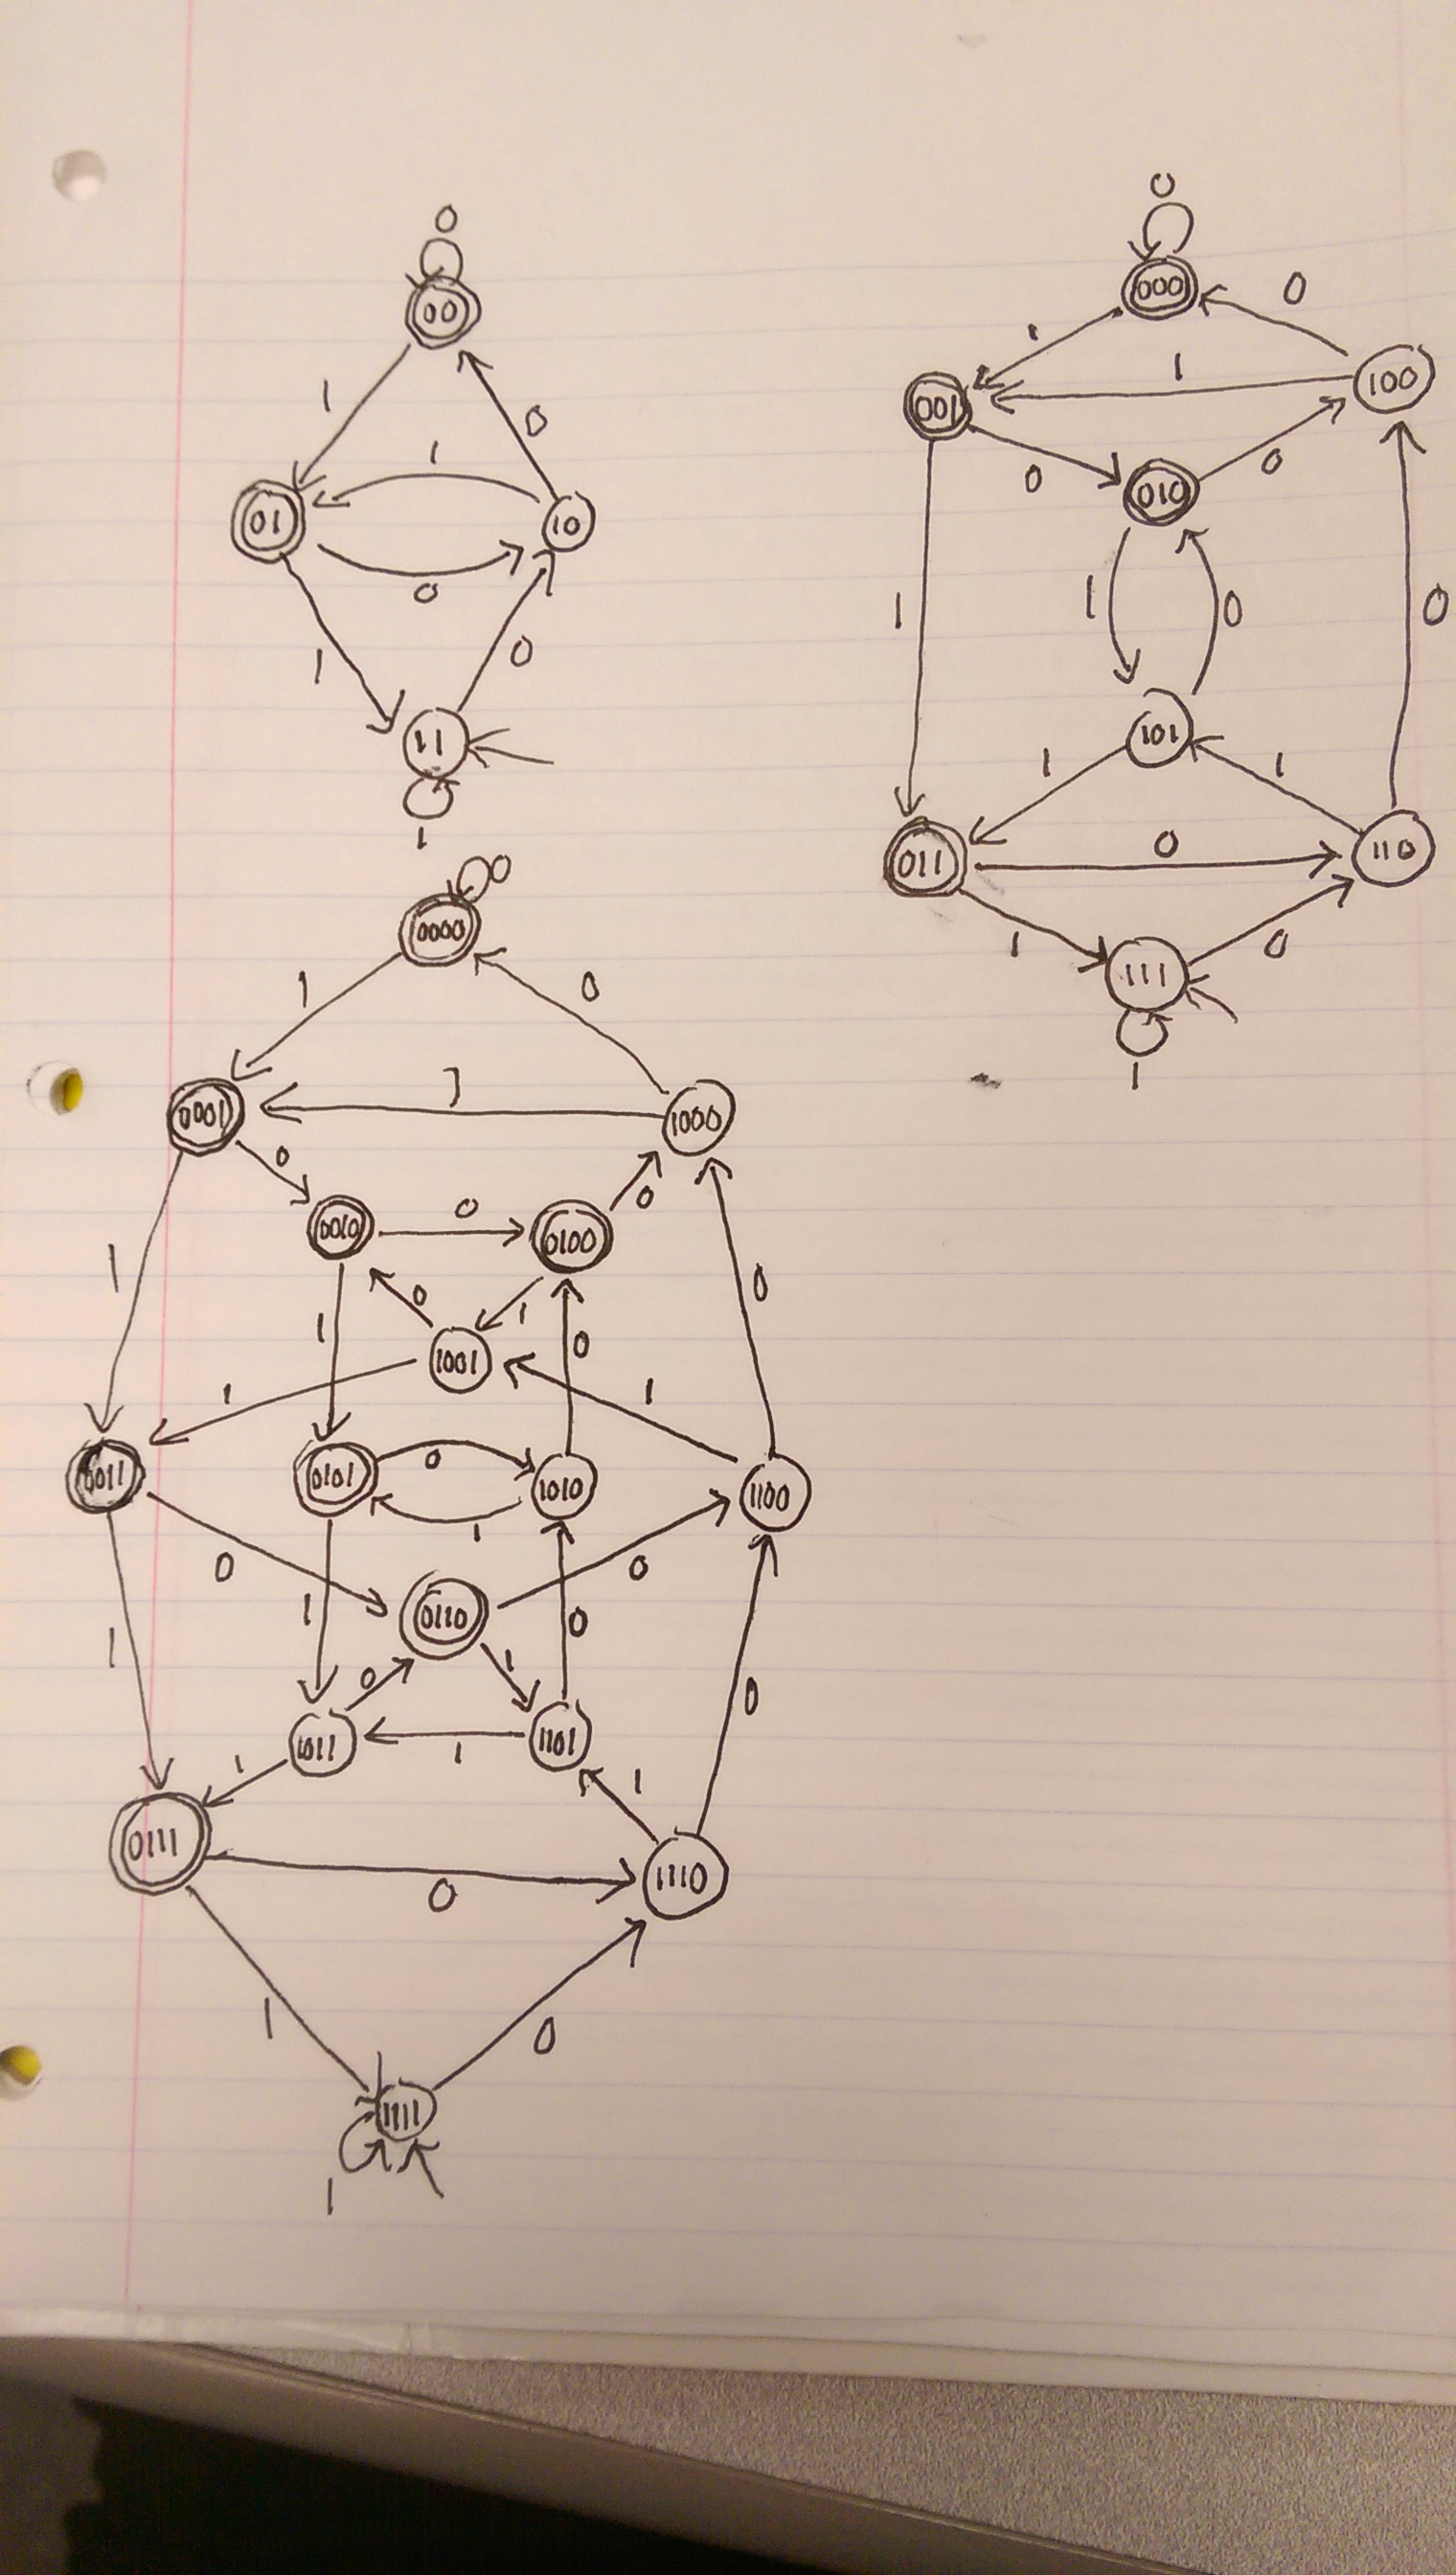 0
00
1
0
1
01
10
0
1
0
11
1
0
000
0
1
1
100
001
0
0
010
1
1
0
0
101
1
1
0
011
110
1
0
111
1
0
0000
1
0
1
0001
1000
0
0
0
0010
0100
1
0
1
1
0
0
1001
1
1
0011
0101
0
1010
1
1100
0
0
1
0
0110
1
0
1
1011
1101
1
1
1
0
0111
1110
0
1
0
1111
1